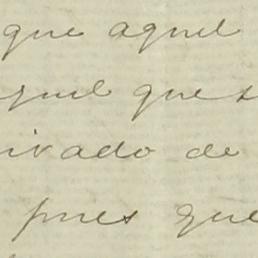 que aquel
que
ivado de
pues que